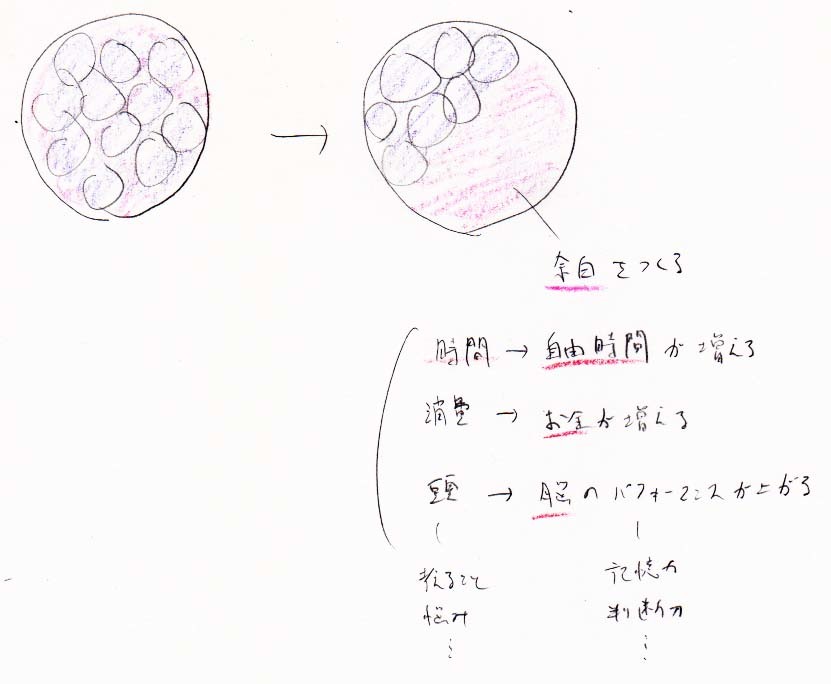 余白をつくる
時間 → 自由時間が増える
消費 → お金が増える
頭 → 脳のパフォーマンスが上がる
考えること 記憶力
悩み 判断力
⋮ ⋮